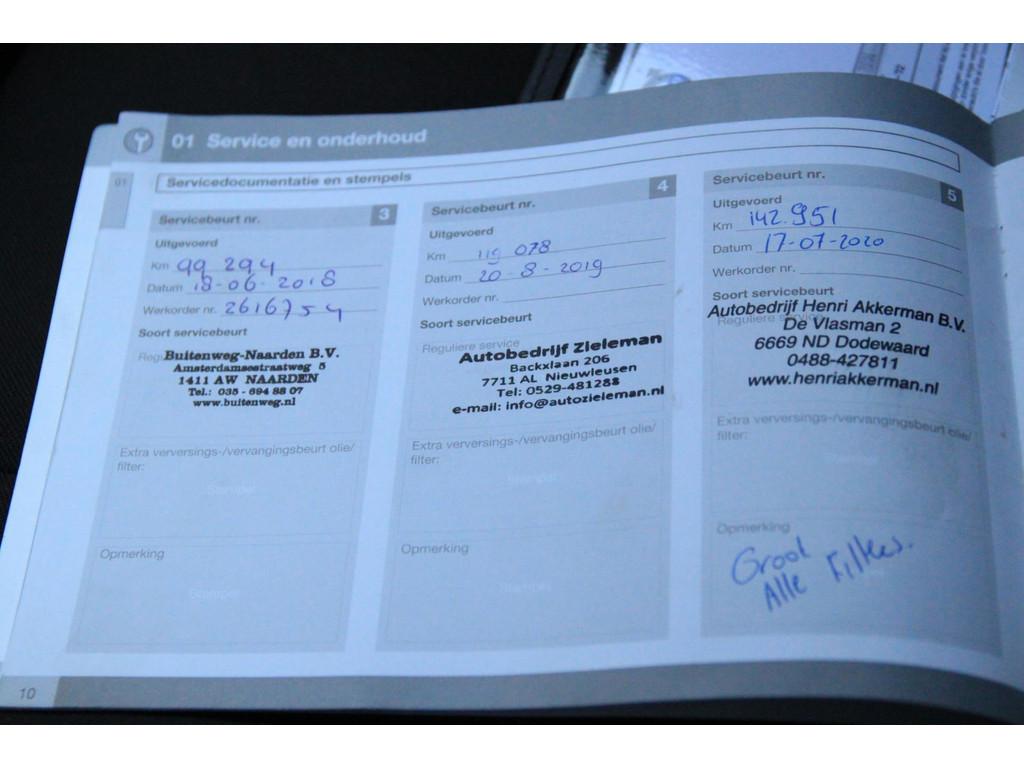 01 Service en onderhoud
01
Servicedocumentatie en stempels
Servicebeurt nr. 3
Uitgevoerd
Km 99 294
Datum 18-06-2018
Werkorder nr. 2616754
Soort servicebeurt
Buitenweg-Naarden B.V.
Amsterdamsestraatweg 5
1411 AW NAARDEN
Tel.: 035 - 694 88 07
www.buitenweg.nl
Extra verversings-/vervangingsbeurt olie/
filter:
Stempel
Opmerking
Stempel
Servicebeurt nr. 4
Uitgevoerd
Km 119 078
Datum 20-8-2019
Werkorder nr.
Soort servicebeurt
Reguliere service
Autobedrijf Zieleman
Backxlaan 206
7711 AL Nieuwleusen
Tel: 0529-481288
e-mail: info@autozieleman.nl
Extra verversings-/vervangingsbeurt olie/
filter:
Stempel
Opmerking
Stempel
Servicebeurt nr. 5
Uitgevoerd
Km 142.951
Datum 17-07-2020
Werkorder nr.
Soort servicebeurt
Reguliere service
Autobedrijf Henri Akkerman B.V.
De Vlasman 2
6669 ND Dodewaard
0488-427811
www.henriakkerman.nl
Extra verversings-/vervangingsbeurt olie/
filter:
Stempel
Opmerking
Groot
Alle Filters.
10